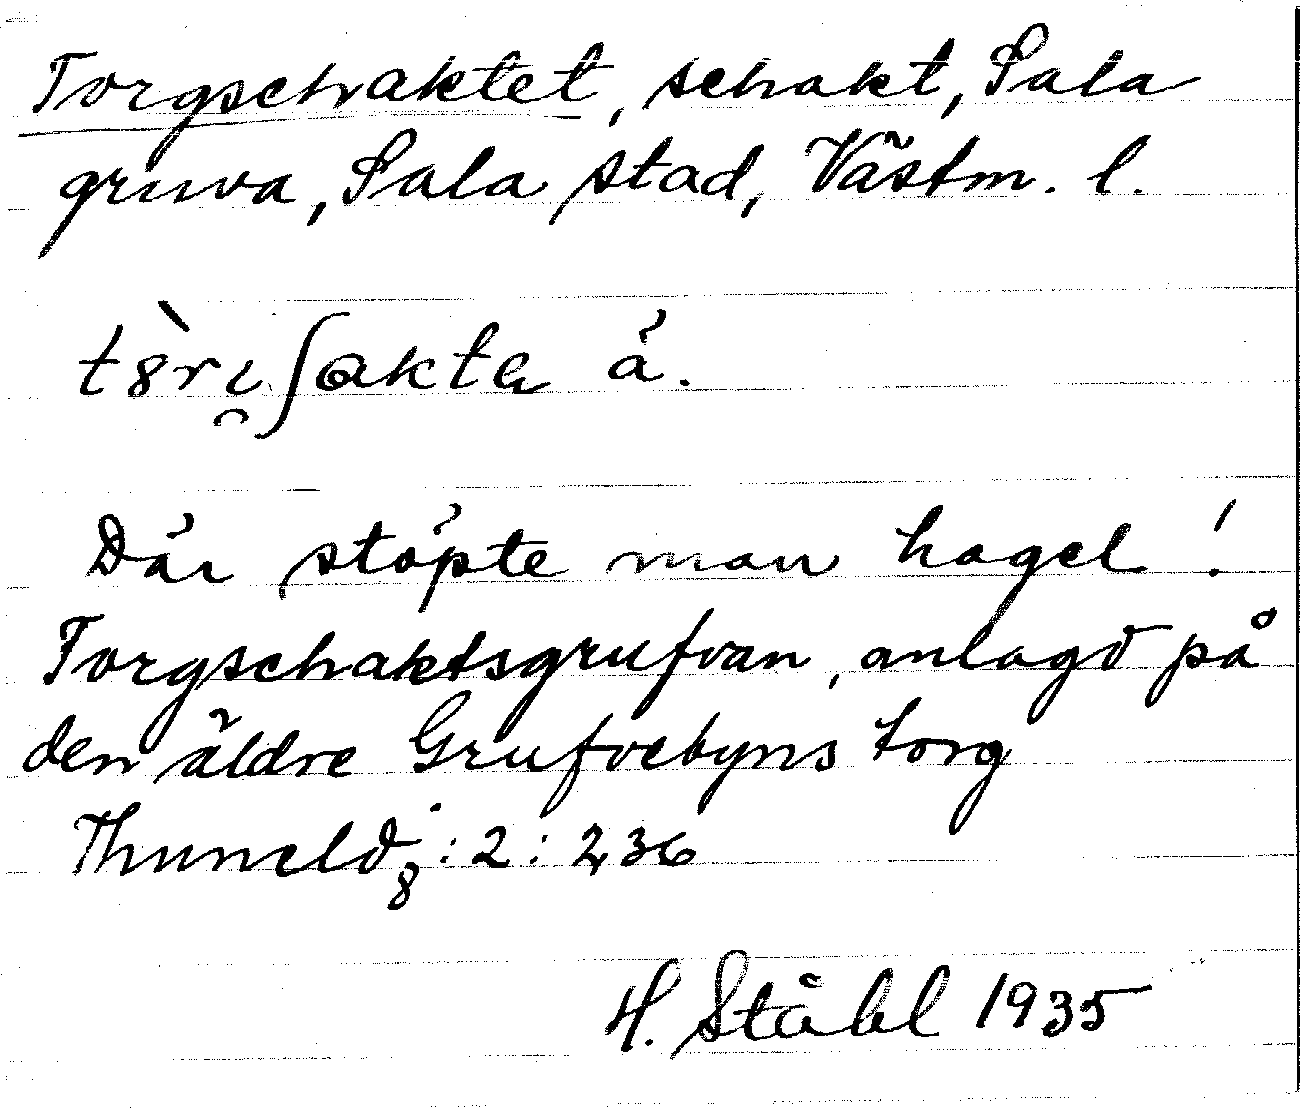 Torgschaktet, schakt, Sala
gruva, Sala stad, Västm. l.
Där stöpte man hagel!
Torgschaktsgrufvan, anlagd på
den äldre Grufvebyns torg
Thuneld 8: 2: 236
H. Ståhl 1935